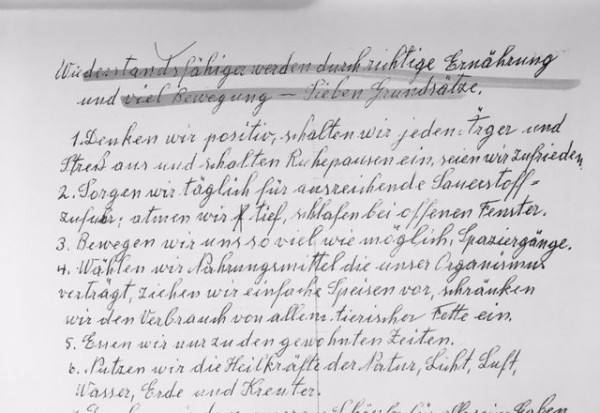 Wiederstandsfähiger werden durch richtige Ernährung
und viel Bewegung – Sieben Grundsätze.
1. Denken wir positiv, schalten wir jeden Ärger und
Streß aus und schalten Ruhepausen ein, seien wir zufrieden.
2. Sorgen wir täglich für ausreichende Sauerstoff-
zufuhr; atmen wir tief, schlafen bei offenen Fenster.
3. Bewegen wir uns so viel wie möglich, Spaziergänge.
4. Wählen wir Nahrungsmittel die unser Organismus
verträgt, ziehen wir einfache Speisen vor, schränken
wir den Verbrauch von allem tierischer Fette ein.
5. Essen wir nur zu den gewohnten Zeiten.
6. Nutzen wir die Heilkräfte der Natur, Licht, Luft,
Wasser, Erde und Kreuter.